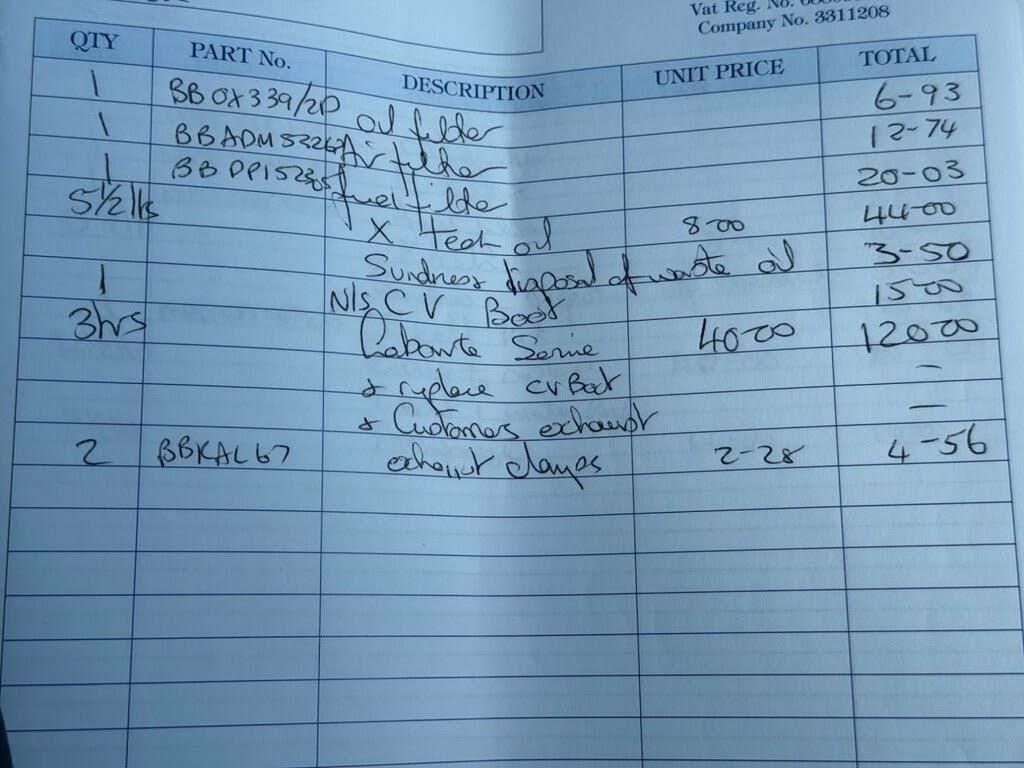 Vat Reg. No.
Company No. 3311208
QTY PART No. DESCRIPTION UNIT PRICE TOTAL
1 BBOX339/2D oil filter 6-93
1 Air filter 12-74
1 fuel filter 20-03
5½ lts X Tech oil 8-00 44-00
Sundries disposal of waste oil 3-50
1 N/S CV Boot 15-00
3hrs Labour to Service 40-00 120-00
& replace CV Boot —
& Customers exhaust —
2 BBKAL67 exhaust clamps 2-28 4-56